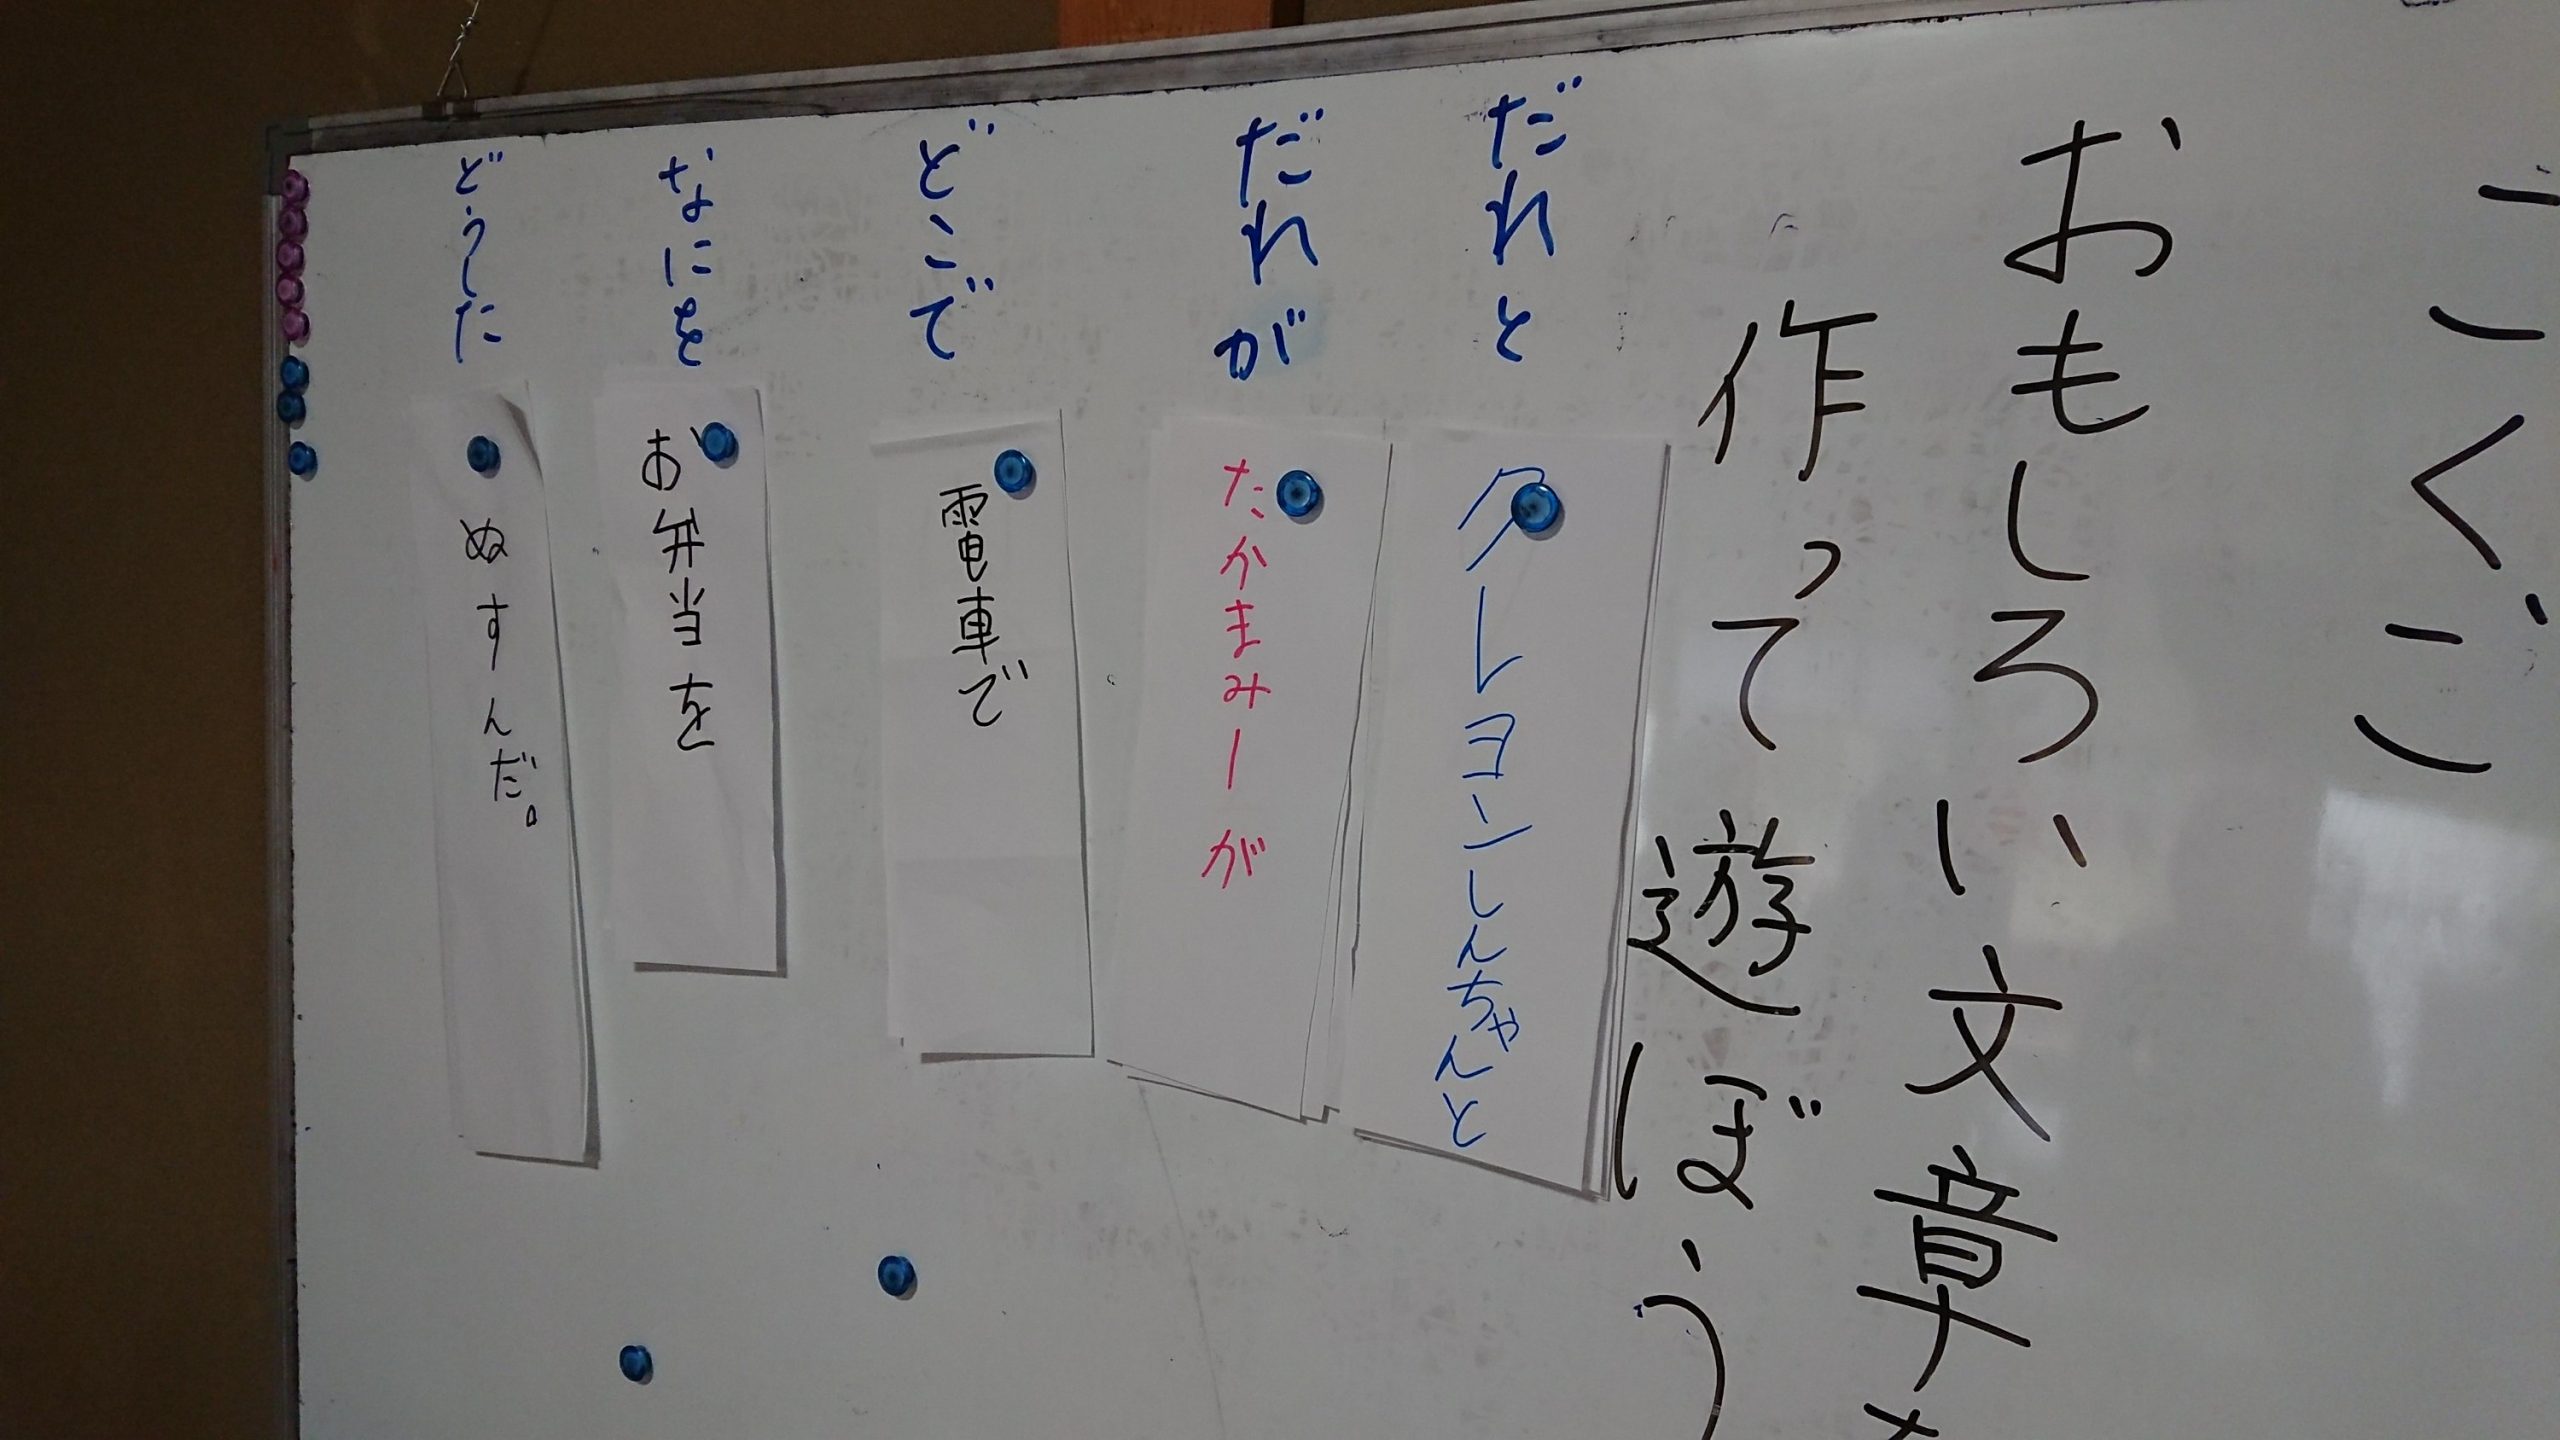 こくごこ
おもしろい文章を
作って遊ぼう
だれと
クレヨンしんちゃんと
だれが
たかまみーが
どこで
電車で
なにを
お弁当を
どうした
ぬすんだ。